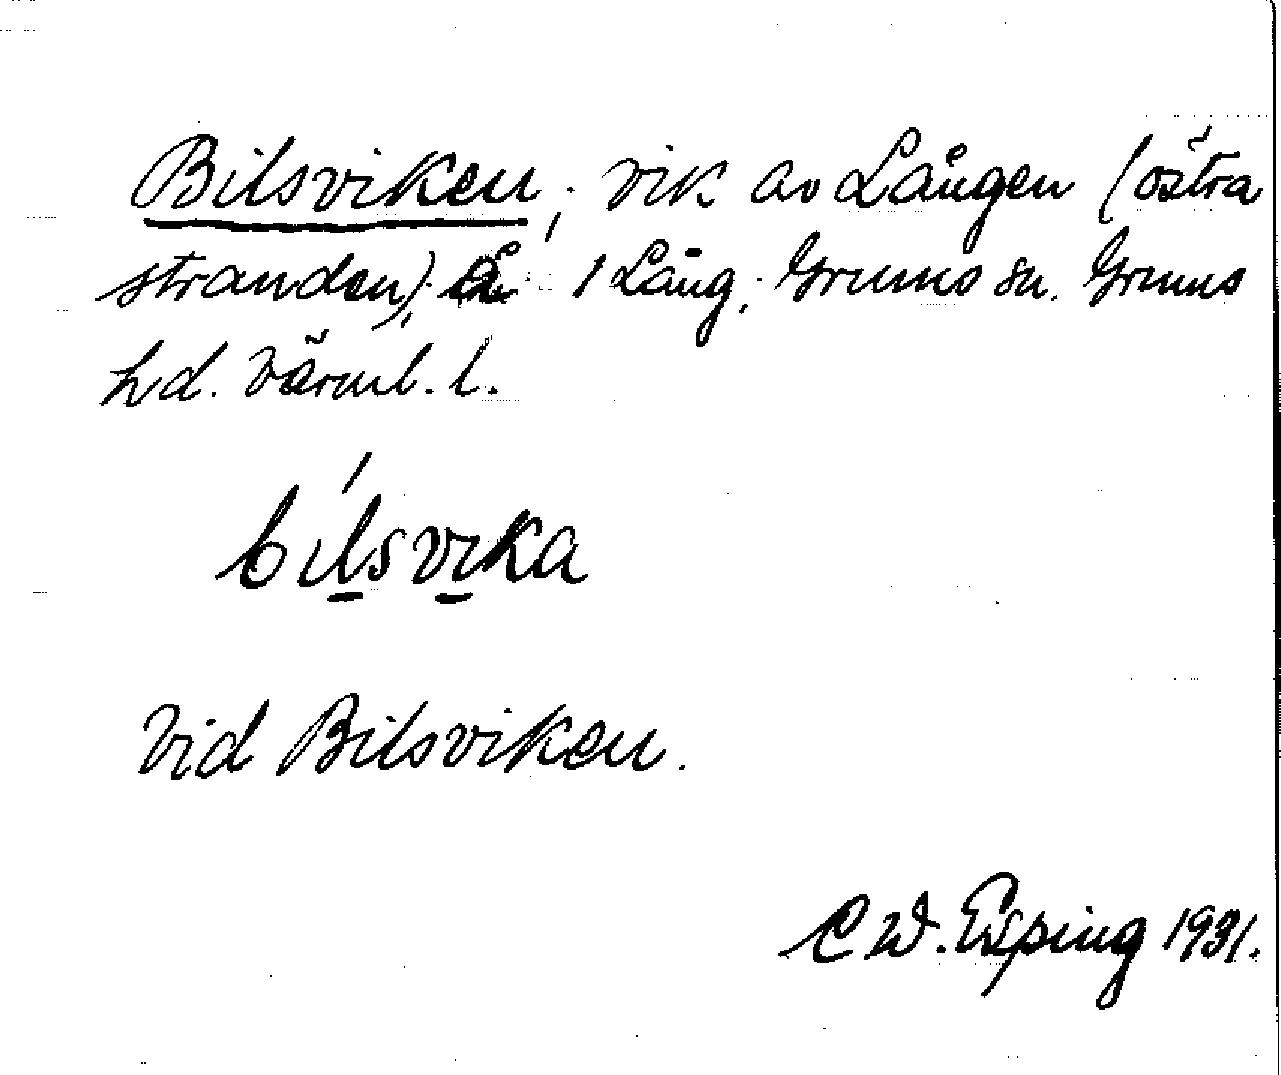 Bilsviken, vik av Lången (östra
stranden), 1 Lång, Grums sn. Grums
hd. Värml. l.
bilsvika
Vid Bilsviken.
C W. Esping 1931.